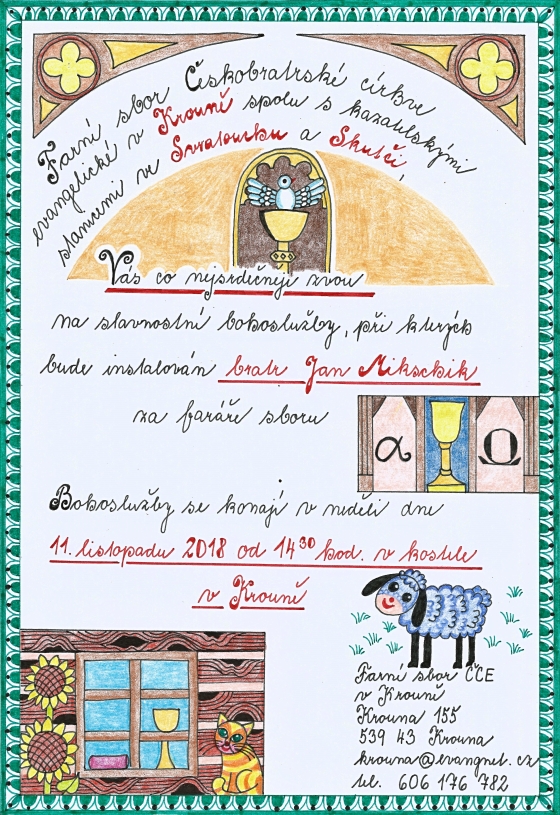 Farní sbor Českobratrské církve
evangelické v Krouně spolu s kazatelskými
stanicemi ve Svratouchu a Skutči
Vás co nejsrdečněji zvou
na slavnostní bohoslužby, při kterých
bude instalován bratr Jan Mikschik
za faráře sboru
α Ω
Bohoslužby se konají v neděli dne
11. listopadu 2018 od 14³⁰ hod. v kostele
v Krouně
Farní sbor ČCE
v Krouně
Krouna 155
539 43 Krouna
krouna@evangnet.cz
tel. 606 176 782